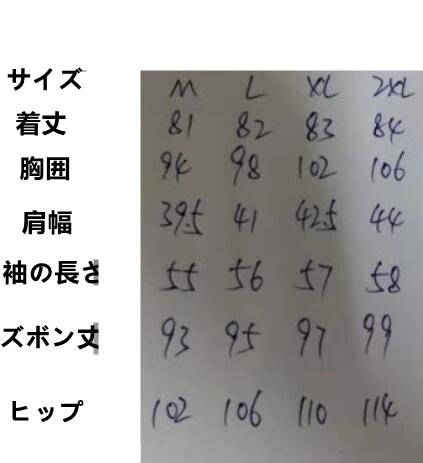 サイズ M L XL 2XL
着丈 81 82 83 84
胸囲 94 98 102 106
肩幅 39.5 41 42.5 44
袖の長さ 55 56 57 58
ズボン丈 93 95 97 99
ヒップ 102 106 110 114